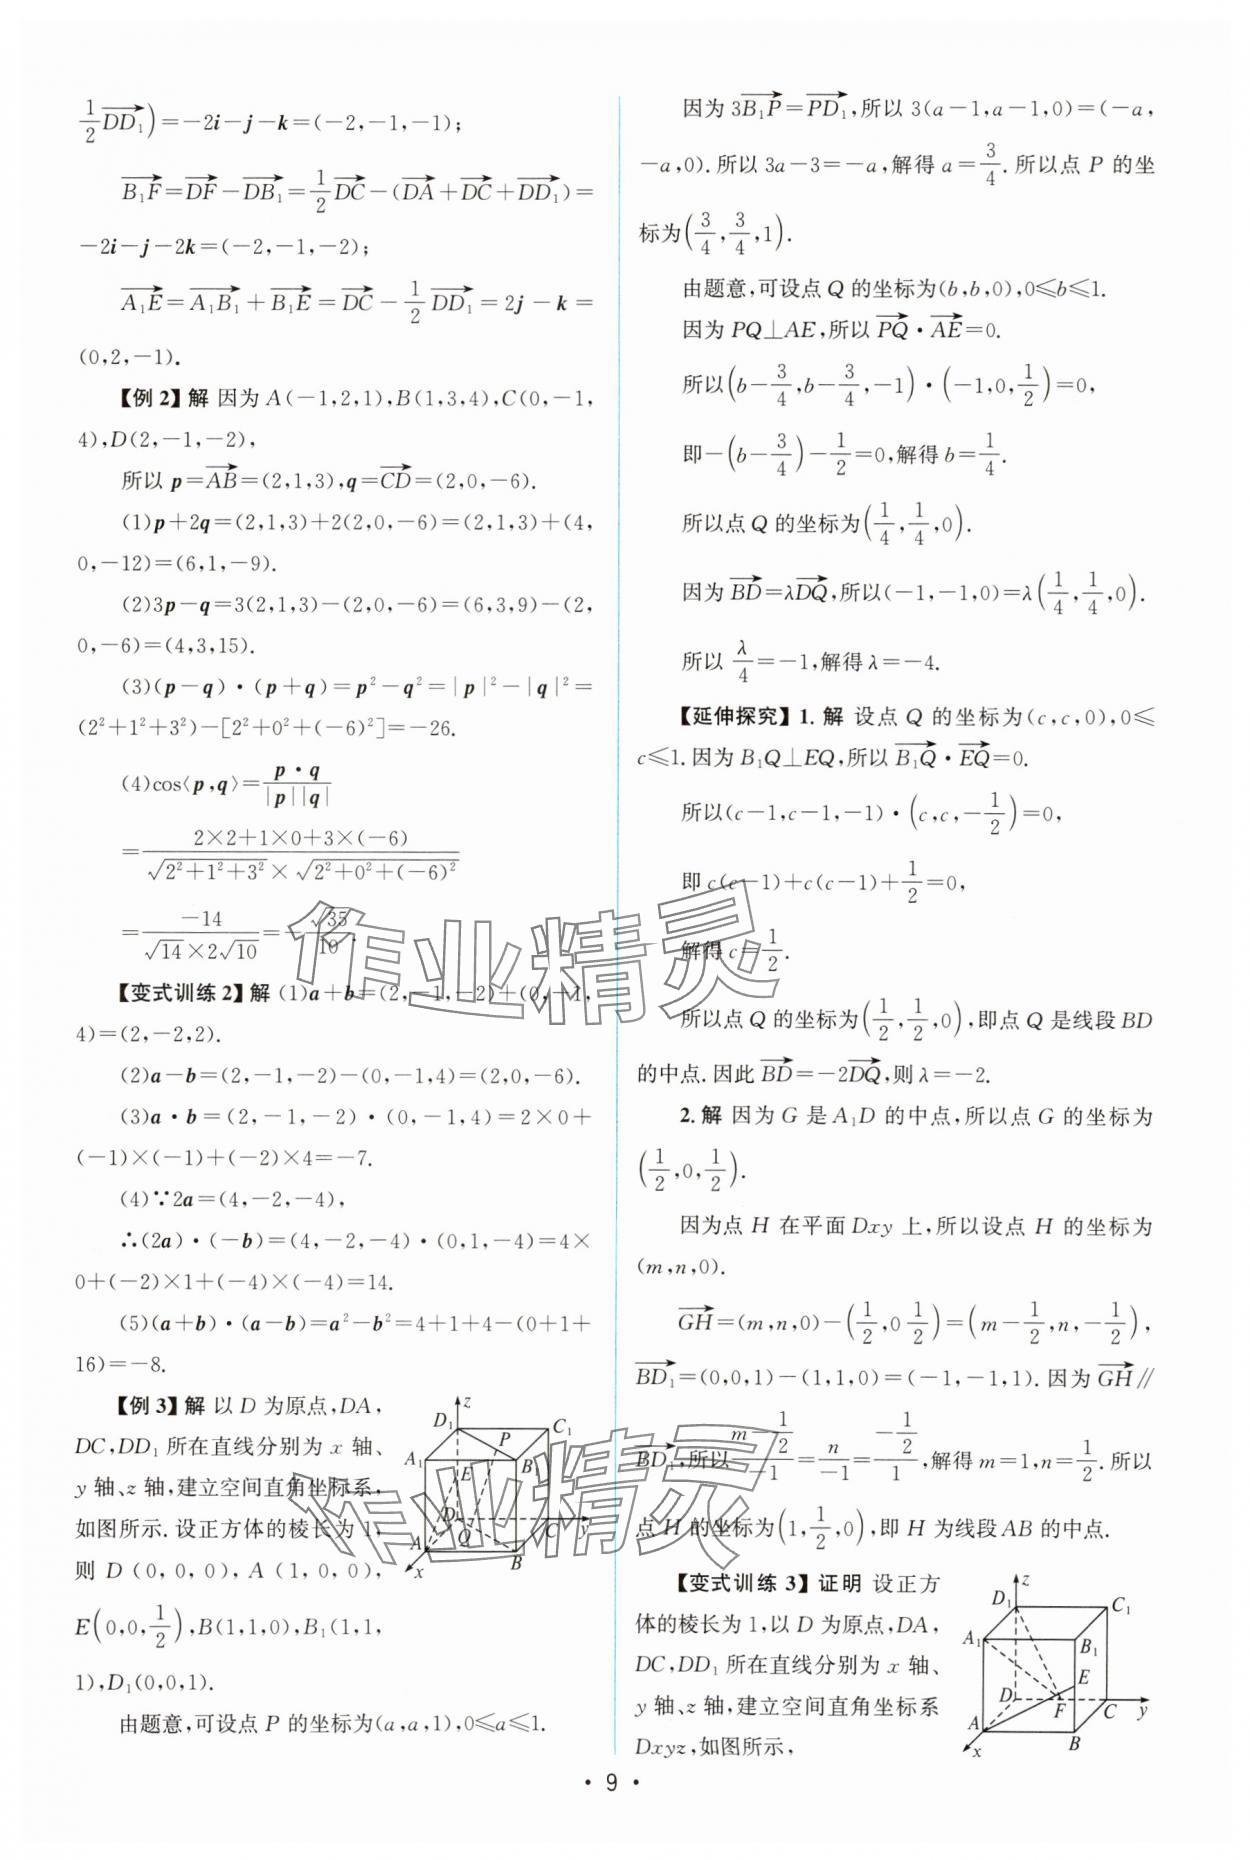 1/2 DD₁)=-2i-j-k=(-2,-1,-1);
B₁F=DF-DB₁=1/2 DC-(DA+DC+DD₁)=
-2i-j-2k=(-2,-1,-2);
A₁E=A₁B₁+B₁E=DC-1/2 DD₁=2j-k=
(0,2,-1).
【例2】解 因为A(-1,2,1),B(1,3,4),C(0,-1,
4),D(2,-1,-2),
所以p=AB=(2,1,3),q=CD=(2,0,-6).
(1)p+2q=(2,1,3)+2(2,0,-6)=(2,1,3)+(4,
0,-12)=(6,1,-9).
(2)3p-q=3(2,1,3)-(2,0,-6)=(6,3,9)-(2,
0,-6)=(4,3,15).
(3)(p-q)·(p+q)=p²-q²=|p|²-|q|²=
(2²+1²+3²)-[2²+0²+(-6)²]=-26.
(4)cos⟨p,q⟩=p·q/|p||q|
=(2×2+1×0+3×(-6))/(√(2²+1²+3²)×√(2²+0²+(-6)²))
=-14/(√14×2√10)=-√35/10.
【变式训练2】解 (1)a+b=(2,-1,-2)+(0,-1,
4)=(2,-2,2).
(2)a-b=(2,-1,-2)-(0,-1,4)=(2,0,-6).
(3)a·b=(2,-1,-2)·(0,-1,4)=2×0+
(-1)×(-1)+(-2)×4=-7.
(4)∵2a=(4,-2,-4),
∴(2a)·(-b)=(4,-2,-4)·(0,1,-4)=4×
0+(-2)×1+(-4)×(-4)=14.
(5)(a+b)·(a-b)=a²-b²=4+1+4-(0+1+
16)=-8.
【例3】解 以D为原点,DA,
DC,DD₁所在直线分别为x轴、
y轴、z轴,建立空间直角坐标系,
如图所示.设正方体的棱长为1,
则D(0,0,0),A(1,0,0),
E(0,0,1/2),B(1,1,0),B₁(1,1,
1),D₁(0,0,1).
z
D₁
C₁
P
A₁
B₁
E
D
Q
C
y
A
B
x
由题意,可设点P的坐标为(a,a,1),0≤a≤1.
因为3B₁P=PD₁,所以3(a-1,a-1,0)=(-a,
-a,0).所以3a-3=-a,解得a=3/4.所以点P的坐
标为(3/4,3/4,1).
由题意,可设点Q的坐标为(b,b,0),0≤b≤1.
因为PQ⊥AE,所以PQ·AE=0.
所以(b-3/4,b-3/4,-1)·(-1,0,1/2)=0,
即-(b-3/4)-1/2=0,解得b=1/4.
所以点Q的坐标为(1/4,1/4,0).
因为BD=λDQ,所以(-1,-1,0)=λ(1/4,1/4,0).
所以λ/4=-1,解得λ=-4.
【延伸探究】1.解 设点Q的坐标为(c,c,0),0≤
c≤1.因为B₁Q⊥EQ,所以B₁Q·EQ=0.
所以(c-1,c-1,-1)·(c,c,-1/2)=0,
即c(c-1)+c(c-1)+1/2=0,
解得c=1/2.
所以点Q的坐标为(1/2,1/2,0),即点Q是线段BD
的中点.因此BD=-2DQ,则λ=-2.
2.解 因为G是A₁D的中点,所以点G的坐标为
(1/2,0,1/2).
因为点H在平面Dxy上,所以设点H的坐标为
(m,n,0).
GH=(m,n,0)-(1/2,0 1/2)=(m-1/2,n,-1/2),
BD₁=(0,0,1)-(1,1,0)=(-1,-1,1).因为GH∥
BD₁,所以(m-1/2)/-1=n/-1=(-1/2)/1,解得m=1,n=1/2.所以
点H的坐标为(1,1/2,0),即H为线段AB的中点.
【变式训练3】证明 设正方
体的棱长为1,以D为原点,DA,
DC,DD₁所在直线分别为x轴、
y轴、z轴,建立空间直角坐标系
Dxyz,如图所示,
z
D₁
C₁
A₁
B₁
E
D
F
C
y
A
B
x
·9·
作业精灵
作业精灵